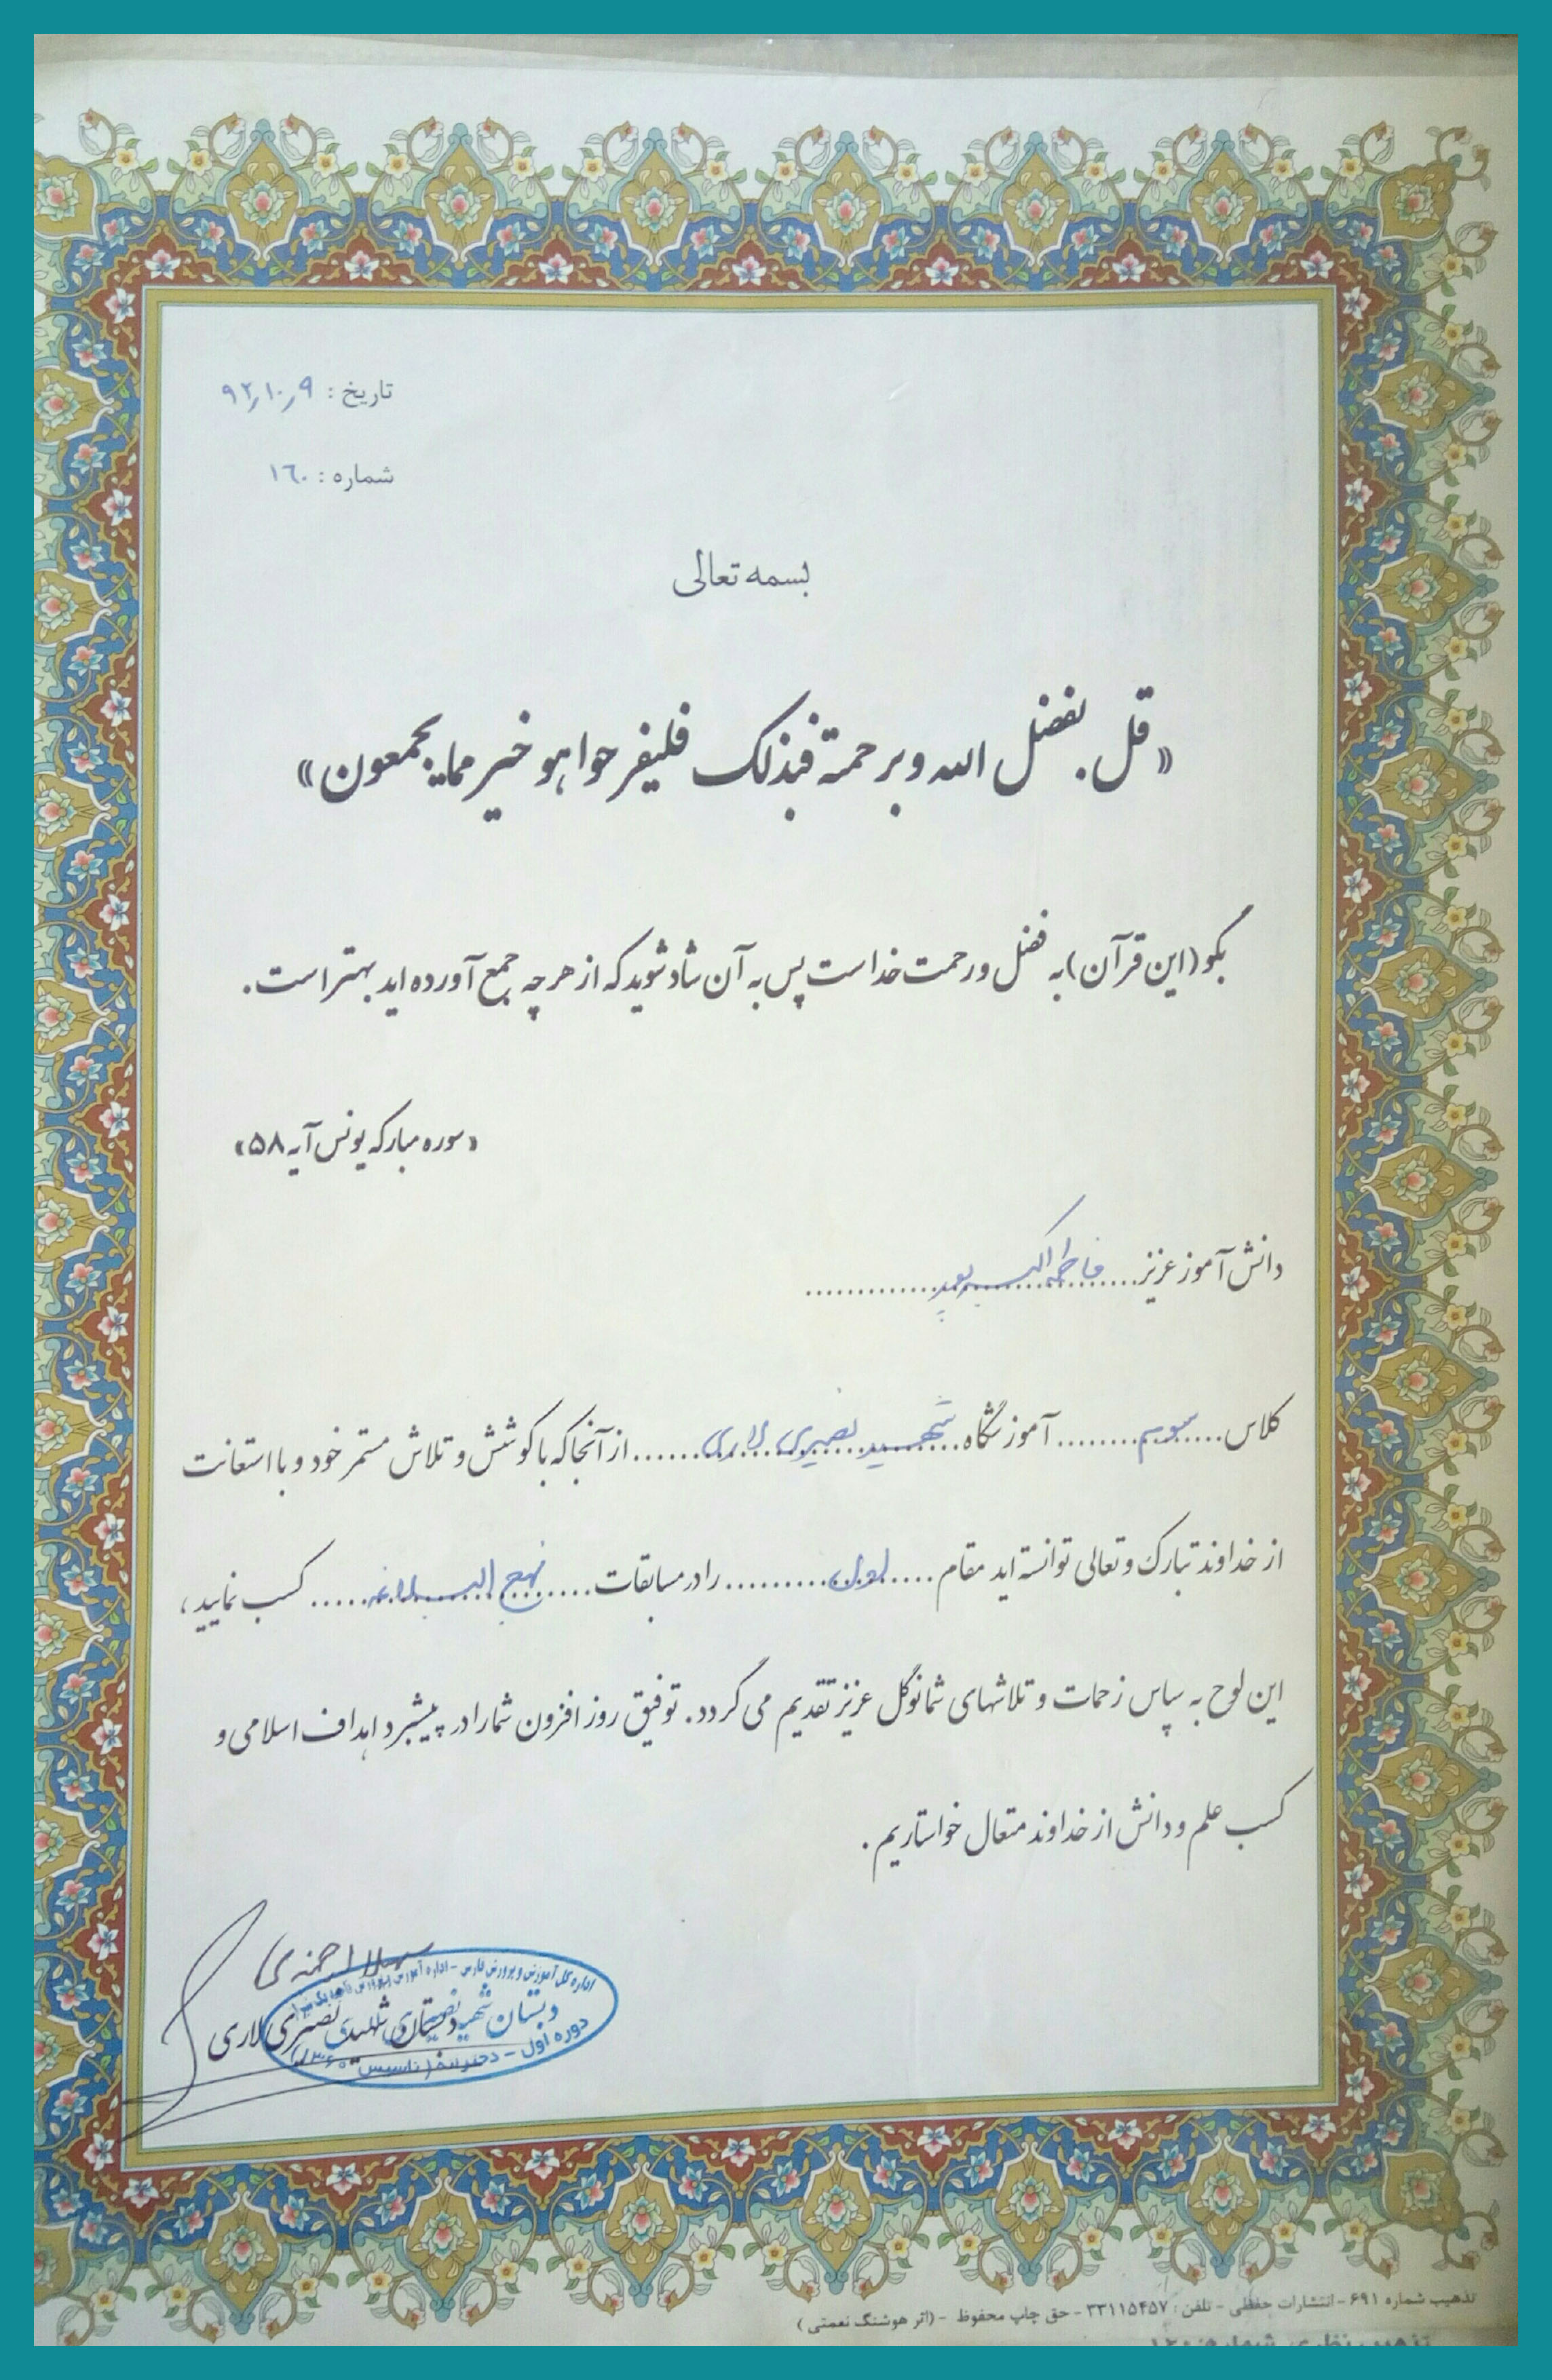 تاریخ : ۹۲/۱۰/۹
شماره : ۱٦۰
بسمه تعالی
«قل بفضل الله وبرحمة فبذلک فلیفرحوا هو خیر مما یجمعون»
بگو (این قرآن) به فضل و رحمت خداست پس به آن شاد شوید که از هر چه جمع آورده اید بهتر است.
«سوره مبارکه یونس آیه ۵۸»
دانش آموز عزیز....فاطمه اکبرپور....
کلاس....سوم....آموزشگاه....شهید نصیری لاری....از آنجا که با کوشش و تلاش مستمر خود و با استعانت
از خداوند تبارک و تعالی توانسته اید مقام....اول....را در مسابقات....نهج البلاغه....کسب نمایید،
این لوح به سپاس زحمات و تلاشهای شما نوگل عزیز تقدیم می گردد. توفیق روز افزون شما را در پیشبرد اهداف اسلامی و
کسب علم و دانش از خداوند متعال خواستاریم.
اداره کل آموزش و پرورش فارس - اداره آموزش و پرورش
دبستان شهید نصیری لاری
دبستان شهید نصیری لاری
دوره اول - دخترانه (تاسیس
تذهیب شماره ۶۹۱ - انتشارات حفظی - تلفن : ۳۳۱۱۵۴۵۷ - حق چاپ محفوظ - (اثر هوشنگ نعمتی)